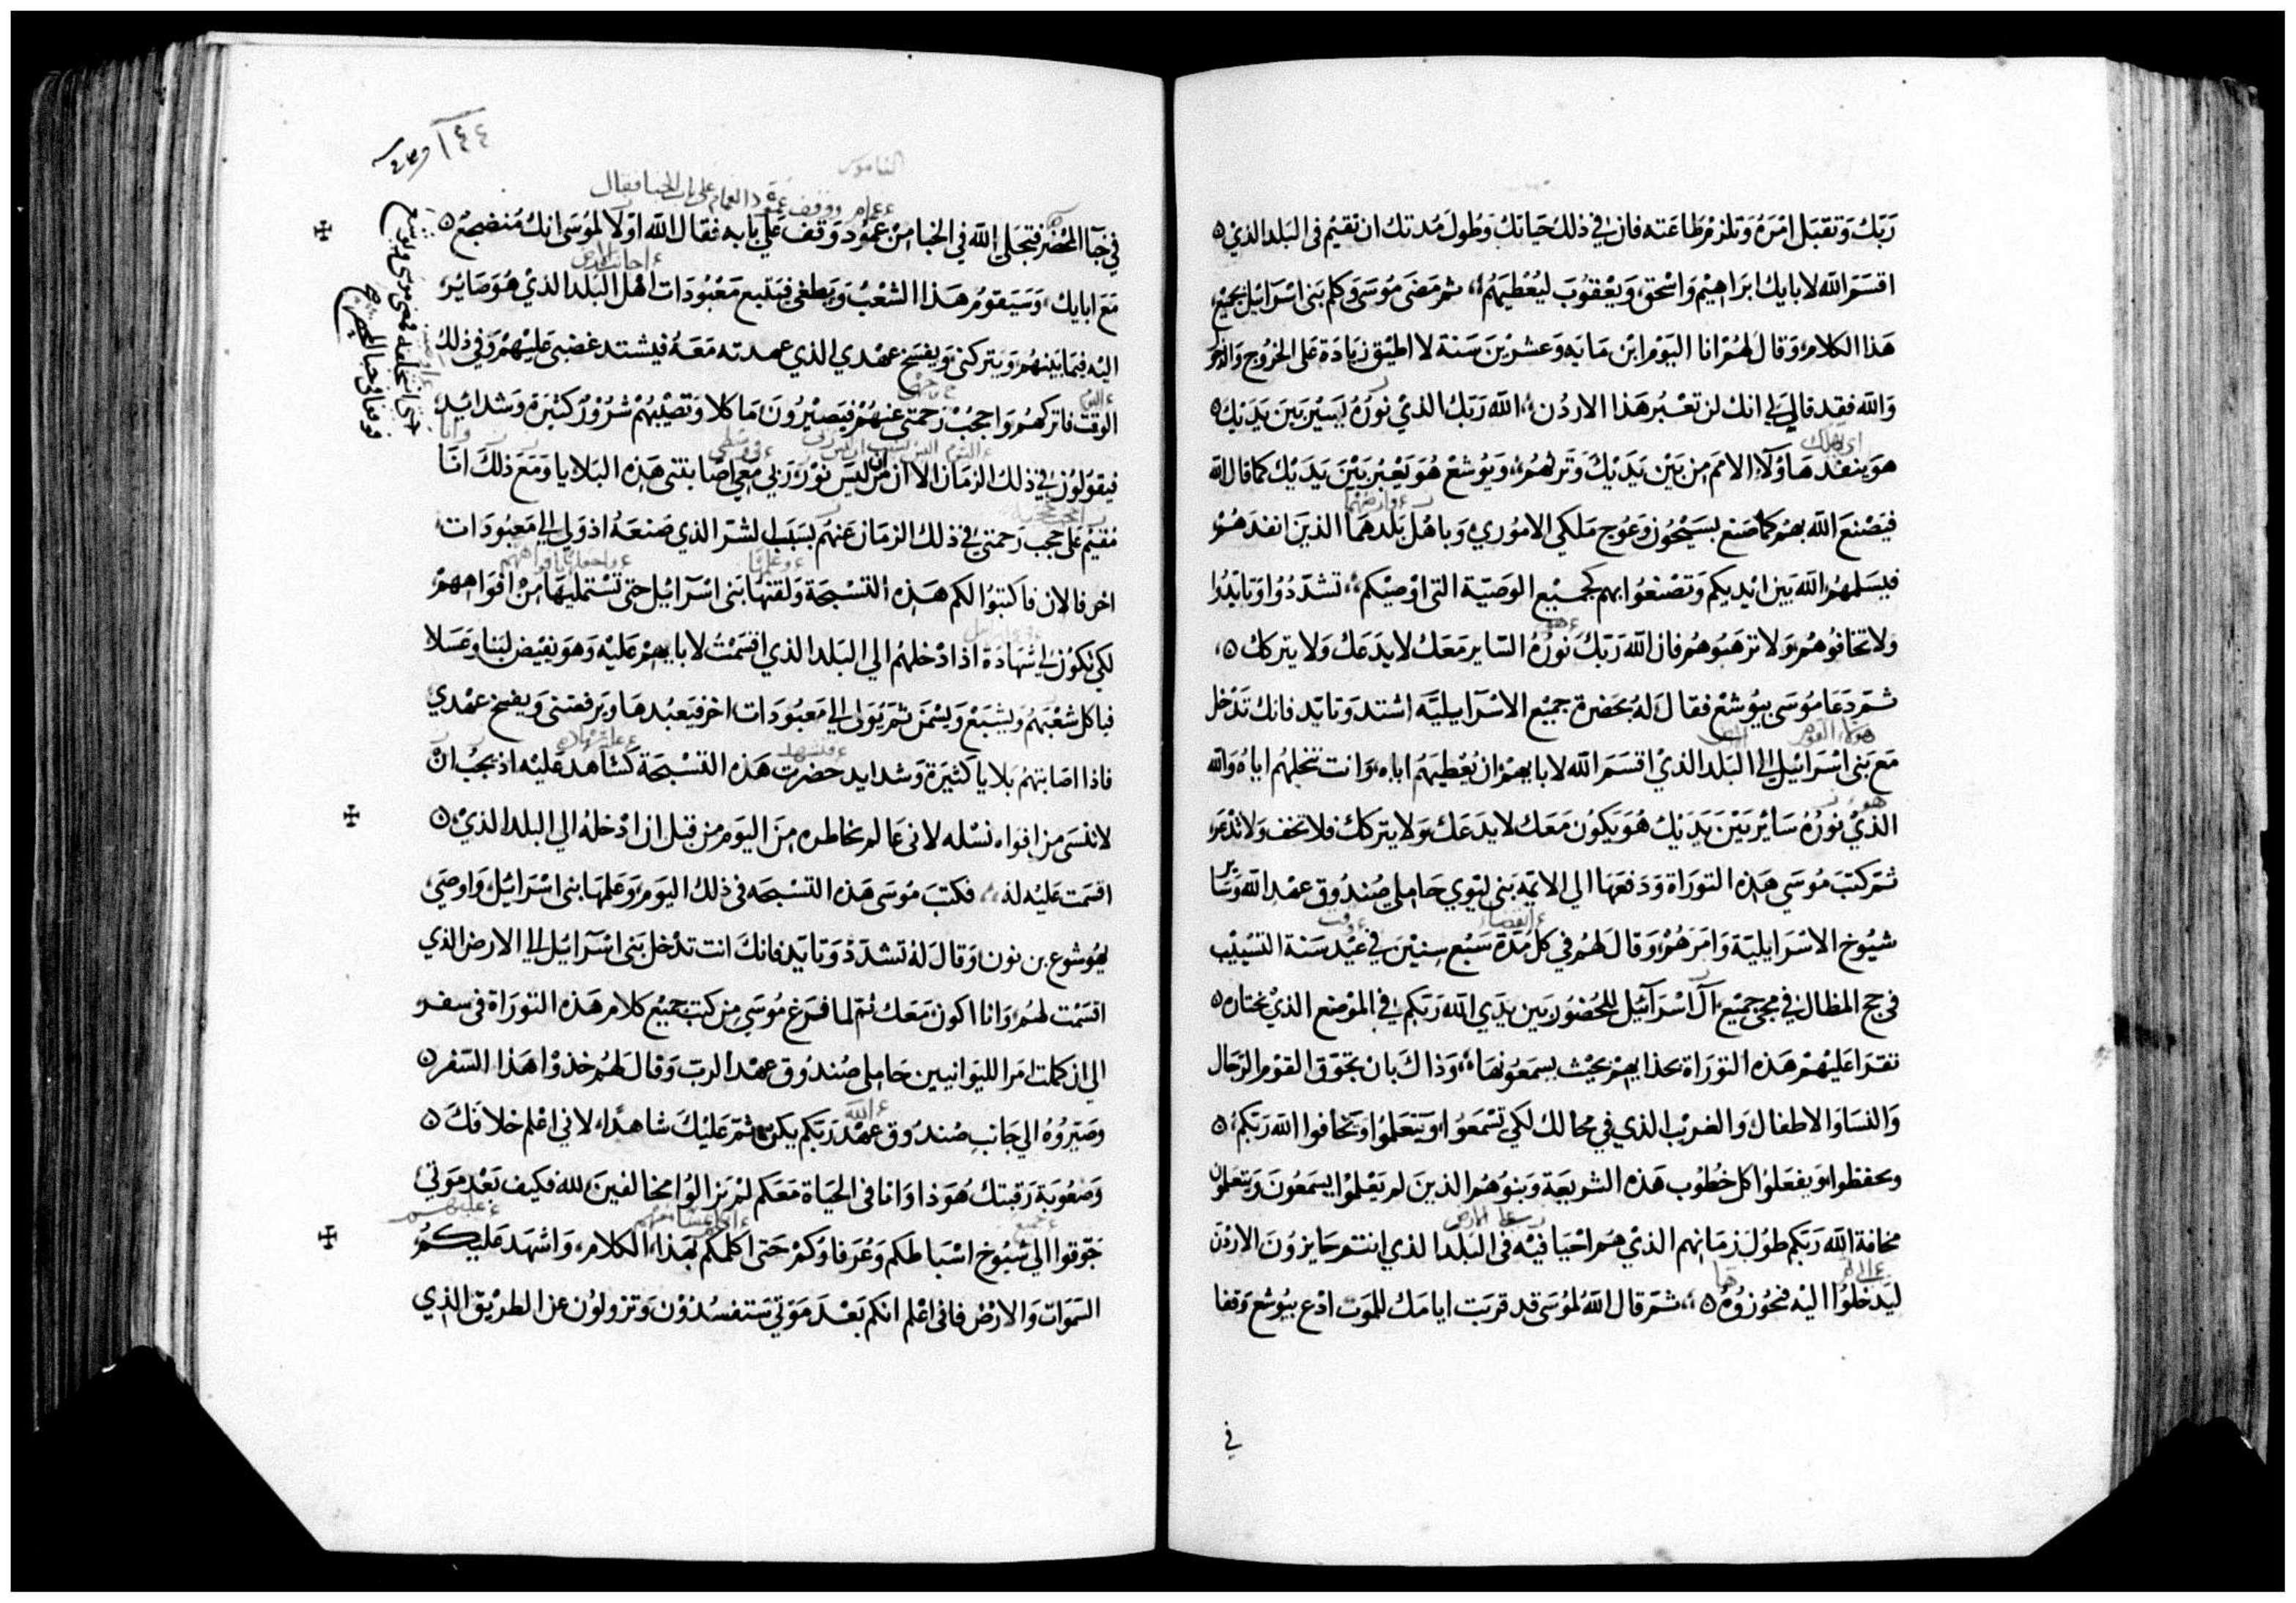 ربك وتقبل امره وتلزم طاعته فان في ذلك حياتك وطول مدتك ان تقيم في البلد الذي
اقسم الله لابايك ابراهيم واسحق ويعقوب ليعطيهم ثم مضى موسى وكلم بني اسرائيل بجميع
هذا الكلام وقال لهم انا اليوم ابن مايه وعشرين سنة لا اطيق زيادة على الخروج والدخول
والله فقد قال لي انك لن تعبر هذا الاردن الله ربك الذي نوره يسير بين يديك
هو ينفد هاولاء الامم من بين يديك وترثهم ويوشع هو يعبر بين يديك كما قال الله
فيصنع الله بهم كما صنع بسيحون وعوج ملكي الاموري وباهل بلدهما الذين انفدهم
فيسلمهم الله بين ايديكم وتصنعوا بهم كجميع الوصية التي اوصيكم تشددوا وتايدوا
ولا تخافوهم ولا ترهبوهم فان الله ربك نوره الساير معك لا يدعك ولا يتركك
ثم دعا موسى بيوشع فقال له بحضرة جميع الاسرايلية اشتد وتايد فانك تدخل
مع بني اسرائيل الى البلد الذي اقسم الله لابايهم ان يعطيهم اياه وانت تنحلهم اياه والله
الذي نوره سائر بين يديك هو يكون معك لا يدعك ولا يتركك فلا تخف ولا تذعر
ثم كتب موسى هذه التوراة ودفعها الى الايمه بني ليوي حاملي صندوق عهد الله وساير
شيوخ الاسرايلية وامرهم وقال لهم في كل مدة سبع سنين في عيد سنة التسييب
في حج المظال في مجي جميع آل اسرآئيل للحضور بين يدي الله ربكم في الموضع الذي يختاره
تقرا عليهم هذه التوراة بحذايهم بحيث يسمعونها وذاك بان تجوق القوم الرجال
والنسا والاطفال والغريب الذي في محالك لكي تسمعوا ويتعلموا وتخافوا الله ربكم
وتحفظوا وتفعلوا كل خطوب هذه الشريعة وبنوهم الذين لم يعلموا يسمعون ويتعلمون
مخافة الله ربكم طول زمانهم الذي هم احيا فيه في البلد الذي انتم حايزون الاردن
ليدخلوا اليه فتحوزوه ثم قال الله لموسى قد قربت ايامك للموت ادع بيوشع وقفا
في
٤٤ا
الناموس
عمود الغمام على باب الخبا فقال
في خبا المحضر فتجلى الله في الخبا من عمود وقف على بابه فقال الله اولا لموسى انك منضجع
مع ابايك وسيقوم هذا الشعب ويطغى فيتبع معبودات اهل البلد الذي هو صائر
اليه فيما بينهم ويتركني ويفسخ عهدي الذي عهدته معه فيشتد غضبي عليهم وفي ذلك
الوقت فاتركهم واحجب رحمتي عنهم فيصيرون ماكلا وتصيبهم شرور كثيرة وشدائيد
فيقولون في ذلك الزمان الا ان من ليس نور ربي معي اصابتني هذه البلايا ومع ذلك انا
مقيم على حجب رحمتي في ذلك الزمان عنهم بسبب الشر الذي صنعه اذ ولى الى معبودات
اخر فالان فاكتبوا لكم هذه التسبحة ولقنها بني اسرآئيل حتى تستمليها من افواههم
لكي تكون لي شهادة اذا ادخلهم الى البلد الذي اقسمت لابايهم عليه وهو يفيض لبنا وعسلا
فياكل شعبهم ويشبع ويسمن ثم يولى الى معبودات اخر فيعبدها ويرفضني ويفسخ عهدي
فاذا اصابتهم بلايا كثيرة وشدايد حضرت هذه التسبحة كشاهد عليه اذ يجب ان
لا تنسى من افواه نسله لاني عالم بخاطره من اليوم من قبل ان ادخله الى البلد الذي
اقسمت عليه له فكتب موسى هذه التسبحه في ذلك اليوم وعلمها بني اسرائيل واوصى
يهوشوع بن نون وقال له تشدد وتايد فانك انت تدخل بني اسرآئيل الى الارض الذي
اقسمت لهم وانا اكون معك ثم لما فرغ موسى من كتب جميع كلام هذه التوراة في سفر
الى ان كملت امر الليوانيين حاملي صندوق عهد الرب وقال لهم خذوا هذا السفر
وصيروه الى جانب صندوق عهد ربكم يكن ثم عليك شاهدا لاني اعلم خلافك
وصعوبة رقبتك هوذا وانا في الحياة معكم لم تزالوا مخالفين لله فكيف بعد موتي
جوقوا الي شيوخ اسباطكم وعرفاوكم حتى اكلمكم بهذا الكلام واشهد عليكم
السموات والارض فاني اعلم انكم بعد موتي ستفسدون وتزولون عن الطريق الذي